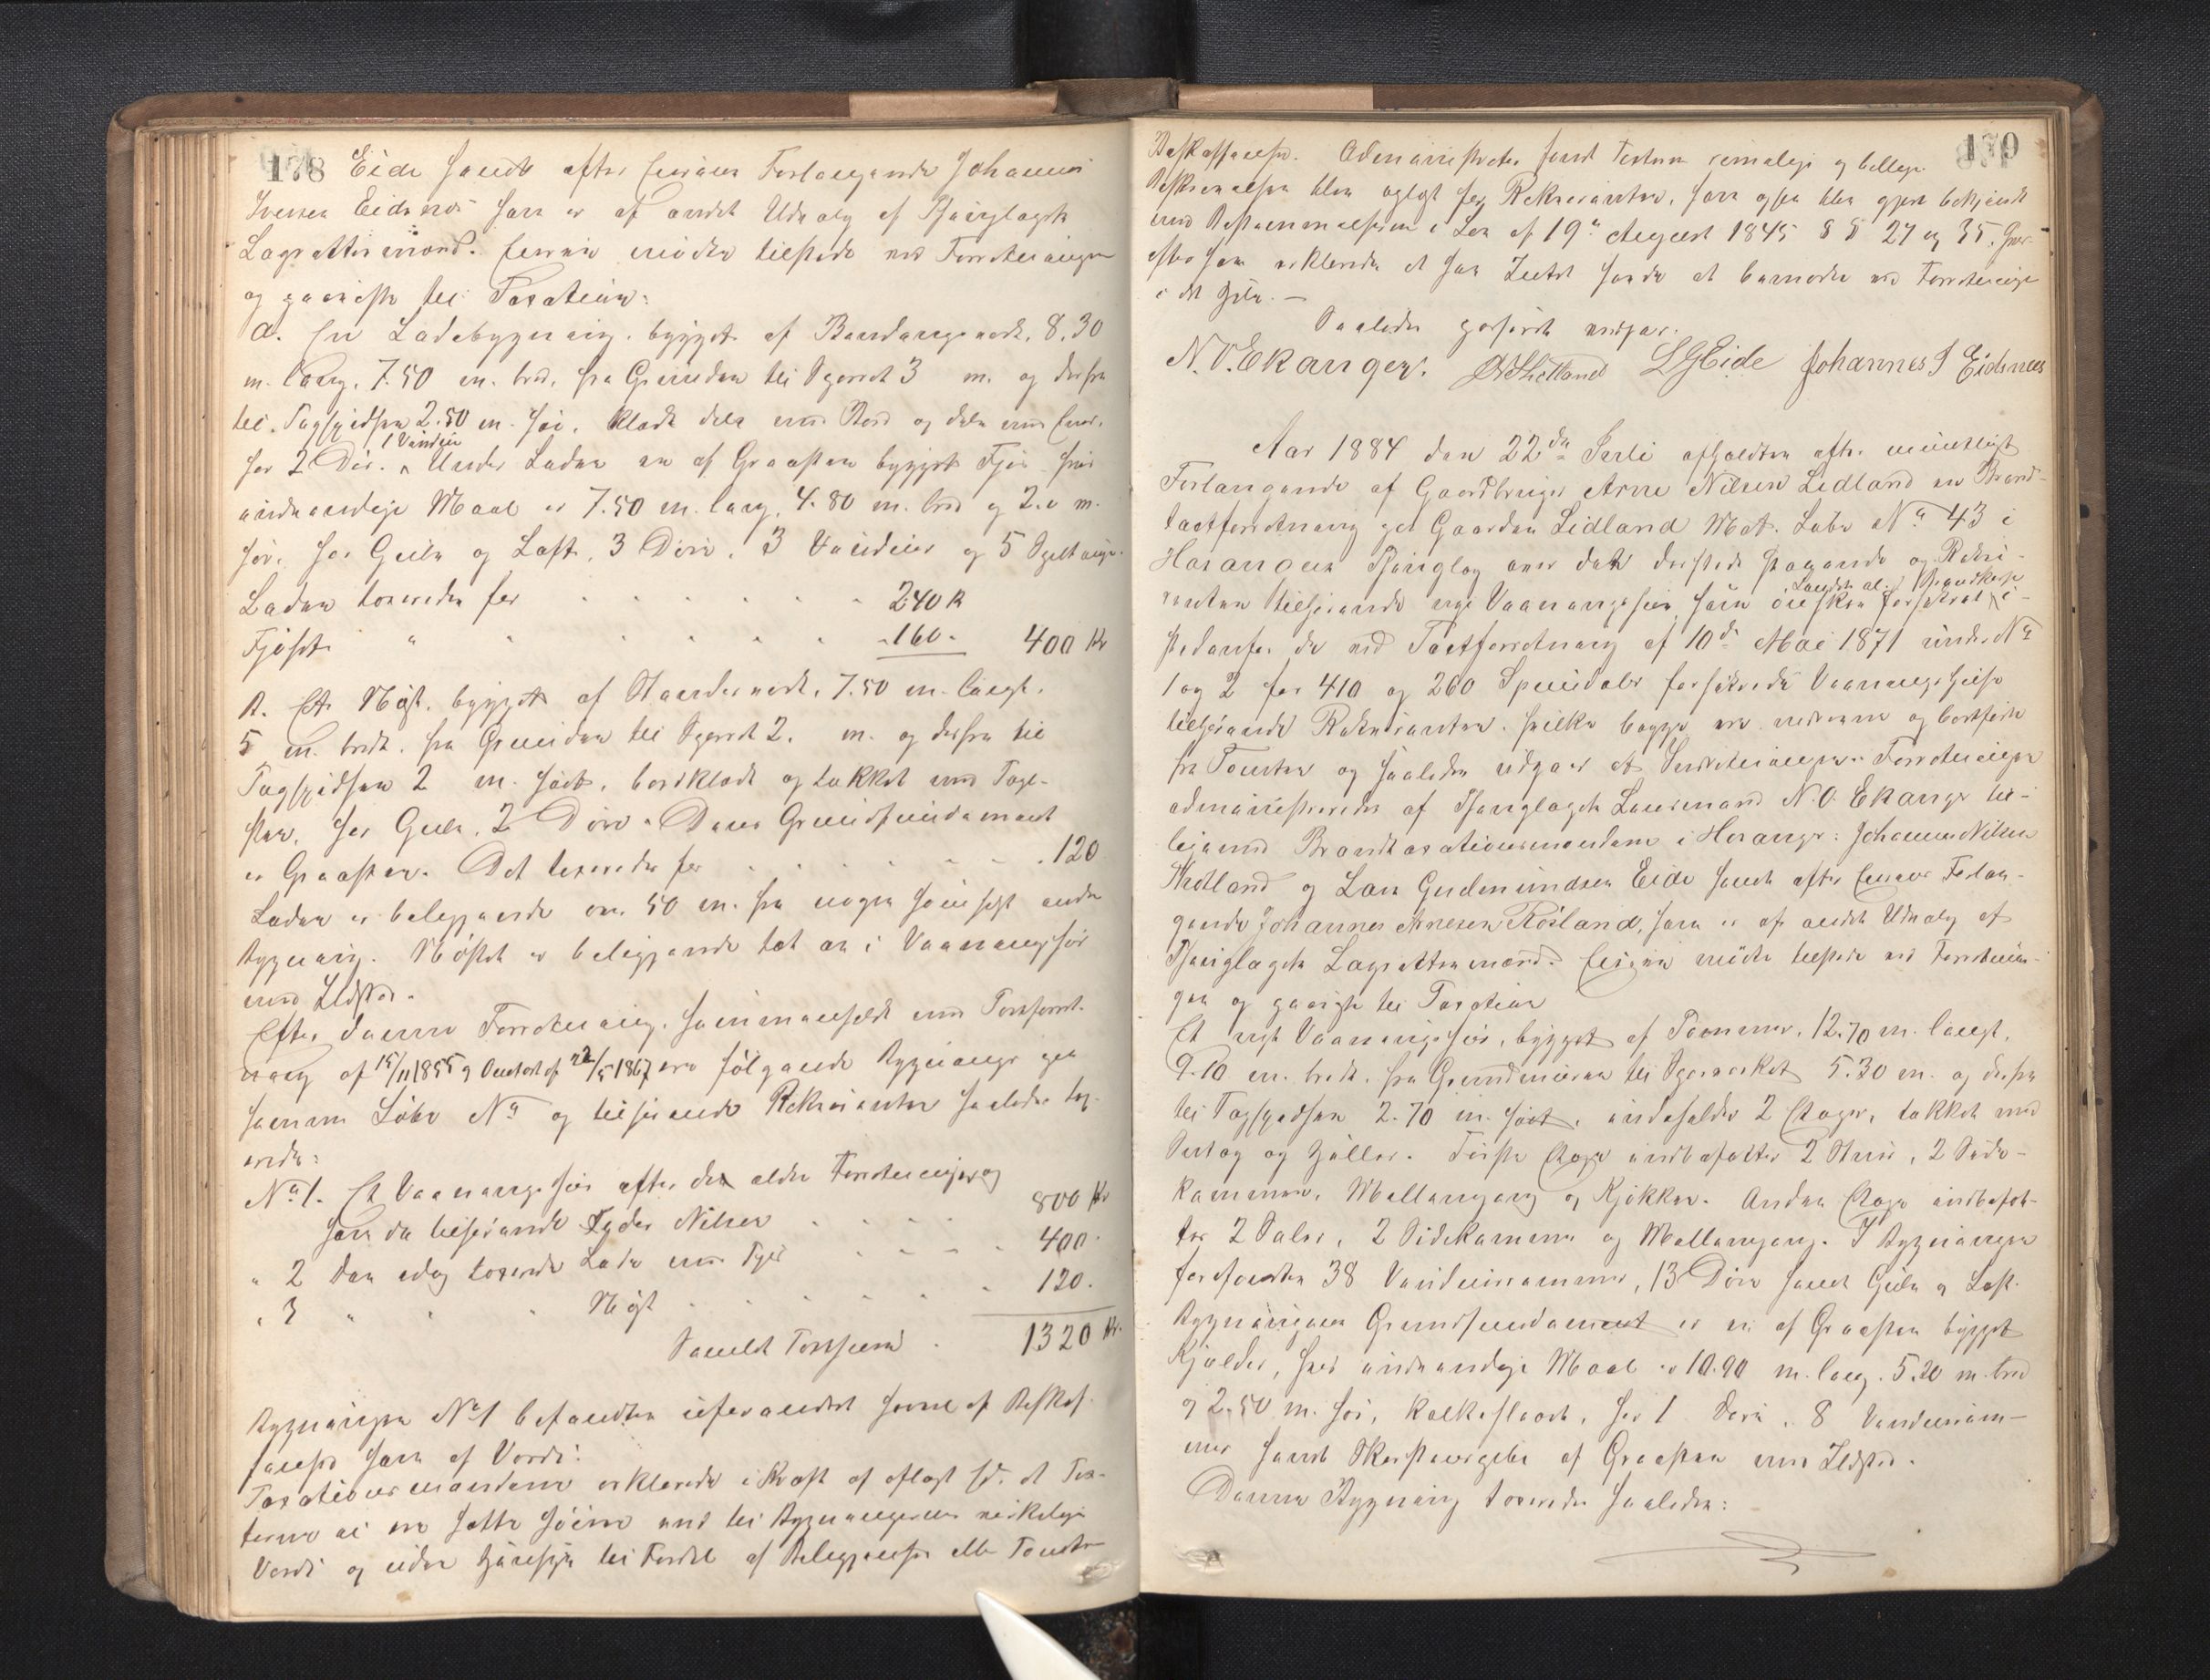 178 Eide samt efter hinanden Forlangende Johannes
Iversen Eidnes som er af andet Udvalg af Thinglagets
Lagrettesmænd. Eieren mødte tilstede ved Forretningen
og gav efter til Taxation:
a. En Ladebygning bygget af Bindingsværk, 8,30
m. lang, 7.50 m. bred, fra Grunden til Ugeret 3 m. og derfra
til Tagspidsen 2.50 m. høi, klædt dels med Bord og dels med Ener,
har 2 Døre. 1 Vindu Under Laden er af Graasten bygget Fjøs hvis
indvendige Maal er 7.50 m. lang, 4.80 m. bred og 2.0 m.
høi, har Gulv og Loft, 3 Døre, 3 Vinduer og 5
Laden taxeredes for 240 Kr
Fjøset " " 160. 400 Kr
B. Et Nøst, bygget af Standerværk, 7.50 m. langt,
5 m. bredt, fra Grunden til Ugeret 2. m. og derfra til
Tagspidsen 2 m. høit, bordklædt og tækket med Tag-
sten, har Gulv, 2 Døre. Dens Grundfundament
er Graasten. Det taxeredes for 120
Laden er beliggende ca. 50 m. fra nogen som helst anden
Bygning. Nøstet er beliggende tæt ved Vaaningshus
med Ildsted.
Efter denne Forretning, sammenholdt med Taxtforret-
ning af 15/11 1855 og Omtaxt af 22/5 1867 ere følgende Bygninger paa
samme Løbe No og tilhørende Rekvirenten saaledes tax-
erede:
No 1. Et Vaaningshus efter den ældre Forretning og
som da tilhørende Peder Nilsen 800 Kr
" 2 den idag taxerede Lade med Fjøs 400.
" 3 " " " Nøst 120.
Samlet Taxtsum 1320 Kr.
Bygningen No 1 befandtes uforandret saavel af Beskaf-
fenhed som af Værdi.
Taxationsmændene erklærede i Kraft af aflagt Ed, at Tax-
terne ei ere satte høiere end til Bygningernes virkelige
Værdi og uden Hensyn til Fordel af Beliggenhed eller Tomtens
179
Beskaffenhed. Administrator fandt Taxten rimelig og billig.
Beskrivelsen blev oplæst for Rekvirenten, som ogsaa blev gjort bekjendt
med Bestemmelserne i Lov af 19de August 1845 §§ 27 og 35, hvor-
efter han erklærede at han Intet havde at bemærke ved Forretningen
i det Hele. —
Saaledes passeret medgaar.
N. O. Ekanger. JNHetland LGEide Johannes I Eidnes
Aar 1884 den 22de Juli afholdtes efter mundtligt
Forlangende af Gaardbruger Arne Nilsen Lidland en Brand-
taxtforretning paa Gaarden Lidland Mat. Løbe No 43 i
Hosanger Thinglag over det derstedet staaende og Rekvi-
renten tilhørende nye Vaaningshus som ønskes forsikret i Landets alm. Brandkasse
istedenfor de ved Taxtforretning af 10de Mai 1871 under No
1 og 2 for 410 og 260 Speciedaler forsikrede Vaaningshuse
tilhørende Rekvirenten, hvilke begge ere nedrevne og bortførte
fra Tomten og saaledes udgaar af Forretningen. Forretningen
administreredes af Thinglagets Lensmand N. O. Ekanger til-
ligemed Brandtaxationsmændene i Hosanger: Johannes Nilsen
Hetland og Lars Gudmundsen Eide samt efter Eierens Forlan-
gende Johannes Arnesen Røsland, som er af andet Udvalg af
Thinglagets Lagrettesmænd. Eieren mødte tilstede ved Forretnin-
gen og gav sig til Taxation
Et nyt Vaaningshus, bygget af Tømmer, 12.70 m. langt,
9.10 m. bredt, fra Grundmuren til Ugeret 5.30 m. og derfra
til Tagspidsen 2.70 m. høit, indeholder 2 Etager, tækket med
Sutag og Heller. Første Etage indbefatter 2 Stuer, 2 Side-
kammere, Mellemgang og Kjøkken. Anden Etage indbefat-
ter 2 Saler, 2 Sidekammere og Mellemgang. I Bygningen
forefindes 38 Vinduesrammer, 13 Døre samt Gulv og Loft.
Bygningens Grundfundament er en af Graasten bygget
Kjælder, hvis indvendige Maal er 10.90 m. lang, 5.20 m. bred
og 2.50 m. høi, kalkslaaet, har 1 Dør, 8 Vinduesram-
mer samt Skorstenspibe af Graasten med Ildsted.
Denne Bygning taxeredes saaledes: